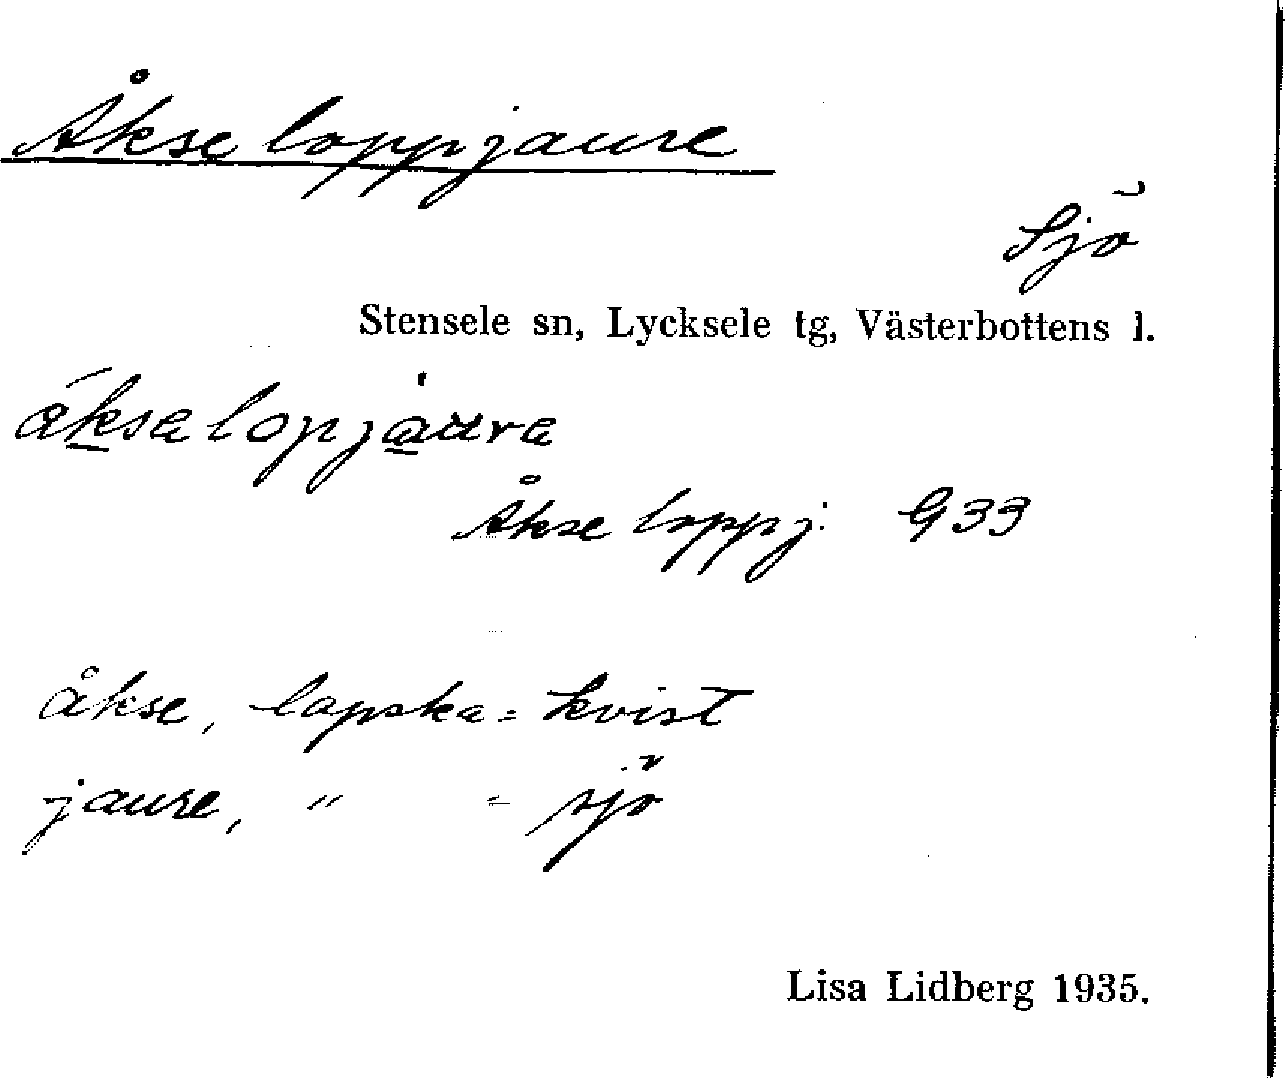 Åkse loppjaure
Sjö
Stensele sn, Lycksele tg, Västerbottens l.
Åkse loppj. G33
åkse, lapska = kvist
jaure, " = sjö
Lisa Lidberg 1935.